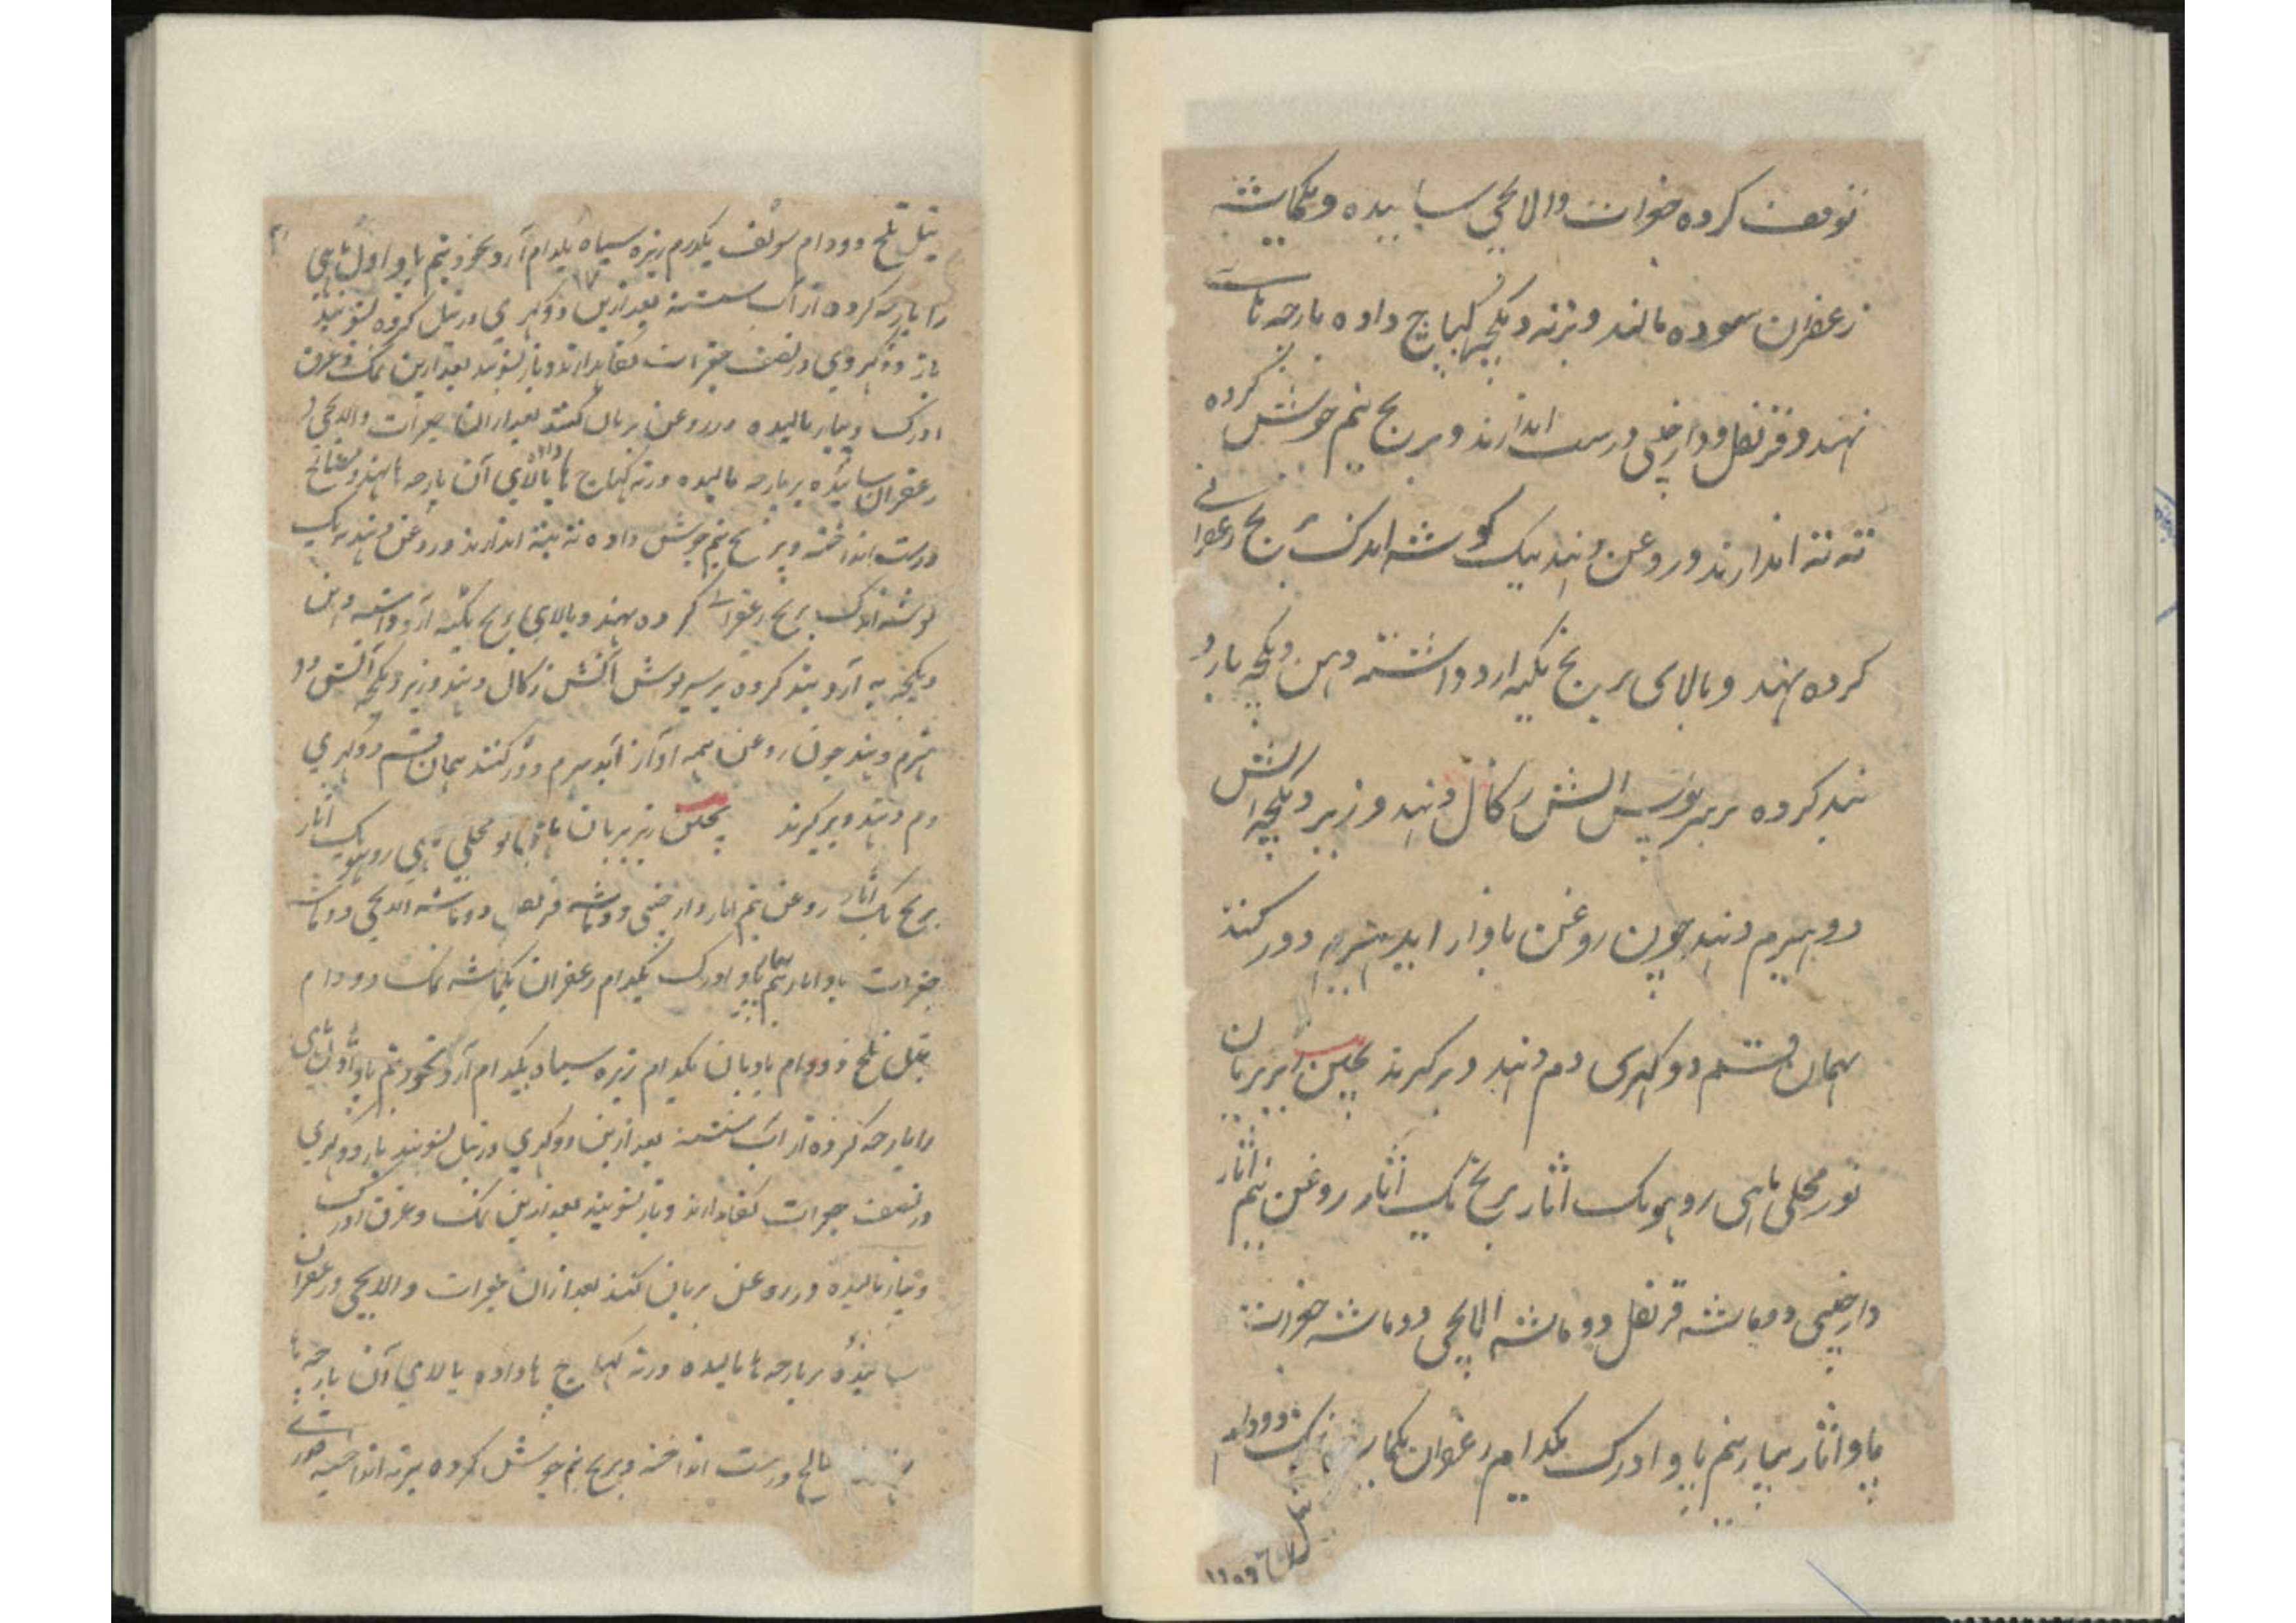 توقف کرده جغرات والایچی ساییده ویکماشه
زعفران سوده مالند ودرته دیگچه کماج داده پارچه ماست
نهند وقرنفل ودارچینی درست اندازند وبرنج نیم جوش کرده
ته ته اندازند وروغن دهند یک گوشه اندک برنج زعفرانی
کرده نهند وبالای برنج تکیه آرد داشته دهن دیگچه بآرد
بند کرده بر سرپوش آتش زکال دهند وزیر دیگچه آتش
دو هیزم دهند چون روغن بآواز آید هیزم دور کنند
همان قسم دوکهری دم دهند وبرگیرند یخنی زیربریان
نورمحلی ماهی روهو یک اثار برنج یک اثار روغن نیم اثار
دارچینی دوماشه قرنفل دوماشه الایچی دوماشه جغرات
پاو اثار پیاز نیم پاو ادرک یکدام زعفران یکما نمک دودام
تیل تلخ دودا
تیل تلخ دودام سونف یکدرم زیره سیاه یکدام آرد نخود نیم پاو اول ماهی
را پارچه کرده از آب شسته بعد ازین دوکهری در تیل کرده بشویند
باز دوکهری در نصف جغرات نگاهدارند وباز بشویند بعد ازین نمک وعرق
ادرک وپیاز مالیده در روغن بریان کنند بعد ازان جغرات والایچی و
زعفران ساییده بر پارچه مالیده درته کماج ها داده بالای آن پارچه ها نهند ومصالح
درست انداخته وبرنج نیم جوش داده ته بته اندازند وروغن دهند یک
گوشه اندک برنج زعفرانی کرده نهند وبالای برنج تکیه آرد داشته دهن
دیگچه به آرد بند کرده بر سرپوش آتش زکال دهند وزیر دیگچه آتش دو
هیزم دهند چون روغن بآواز آید هیزم دور کنند همان قسم دوکهری
دم دهند وبرگیرند یخنی زیربریان نورمحلی ماهی روهو یک اثار
برنج یک اثار روغن نیم اثار دارچینی دوماشه قرنفل دوماشه الایچی دوماشه
جغرات پاو اثار پیاز نیم پاو ادرک یکدام زعفران یکماشه نمک دودام
تیل تلخ دودام بادیان یکدام زیره سیاه یکدام آرد نخود نیم پاو اول ماهی
را پارچه کرده از آب شسته بعد ازین دوکهری در تیل بشویند باز دوکهری
در نصف جغرات نگاهدارند وباز بشویند بعد ازین نمک وعرق ادرک
وپیاز مالیده در روغن بریان کنند بعد ازان جغرات والایچی وزعفران
ساییده بر پارچه ها مالیده درته کماج ها داده بالای آن پارچه ها
مصالح درست انداخته وبرنج نیم جوش کرده برته انداخته